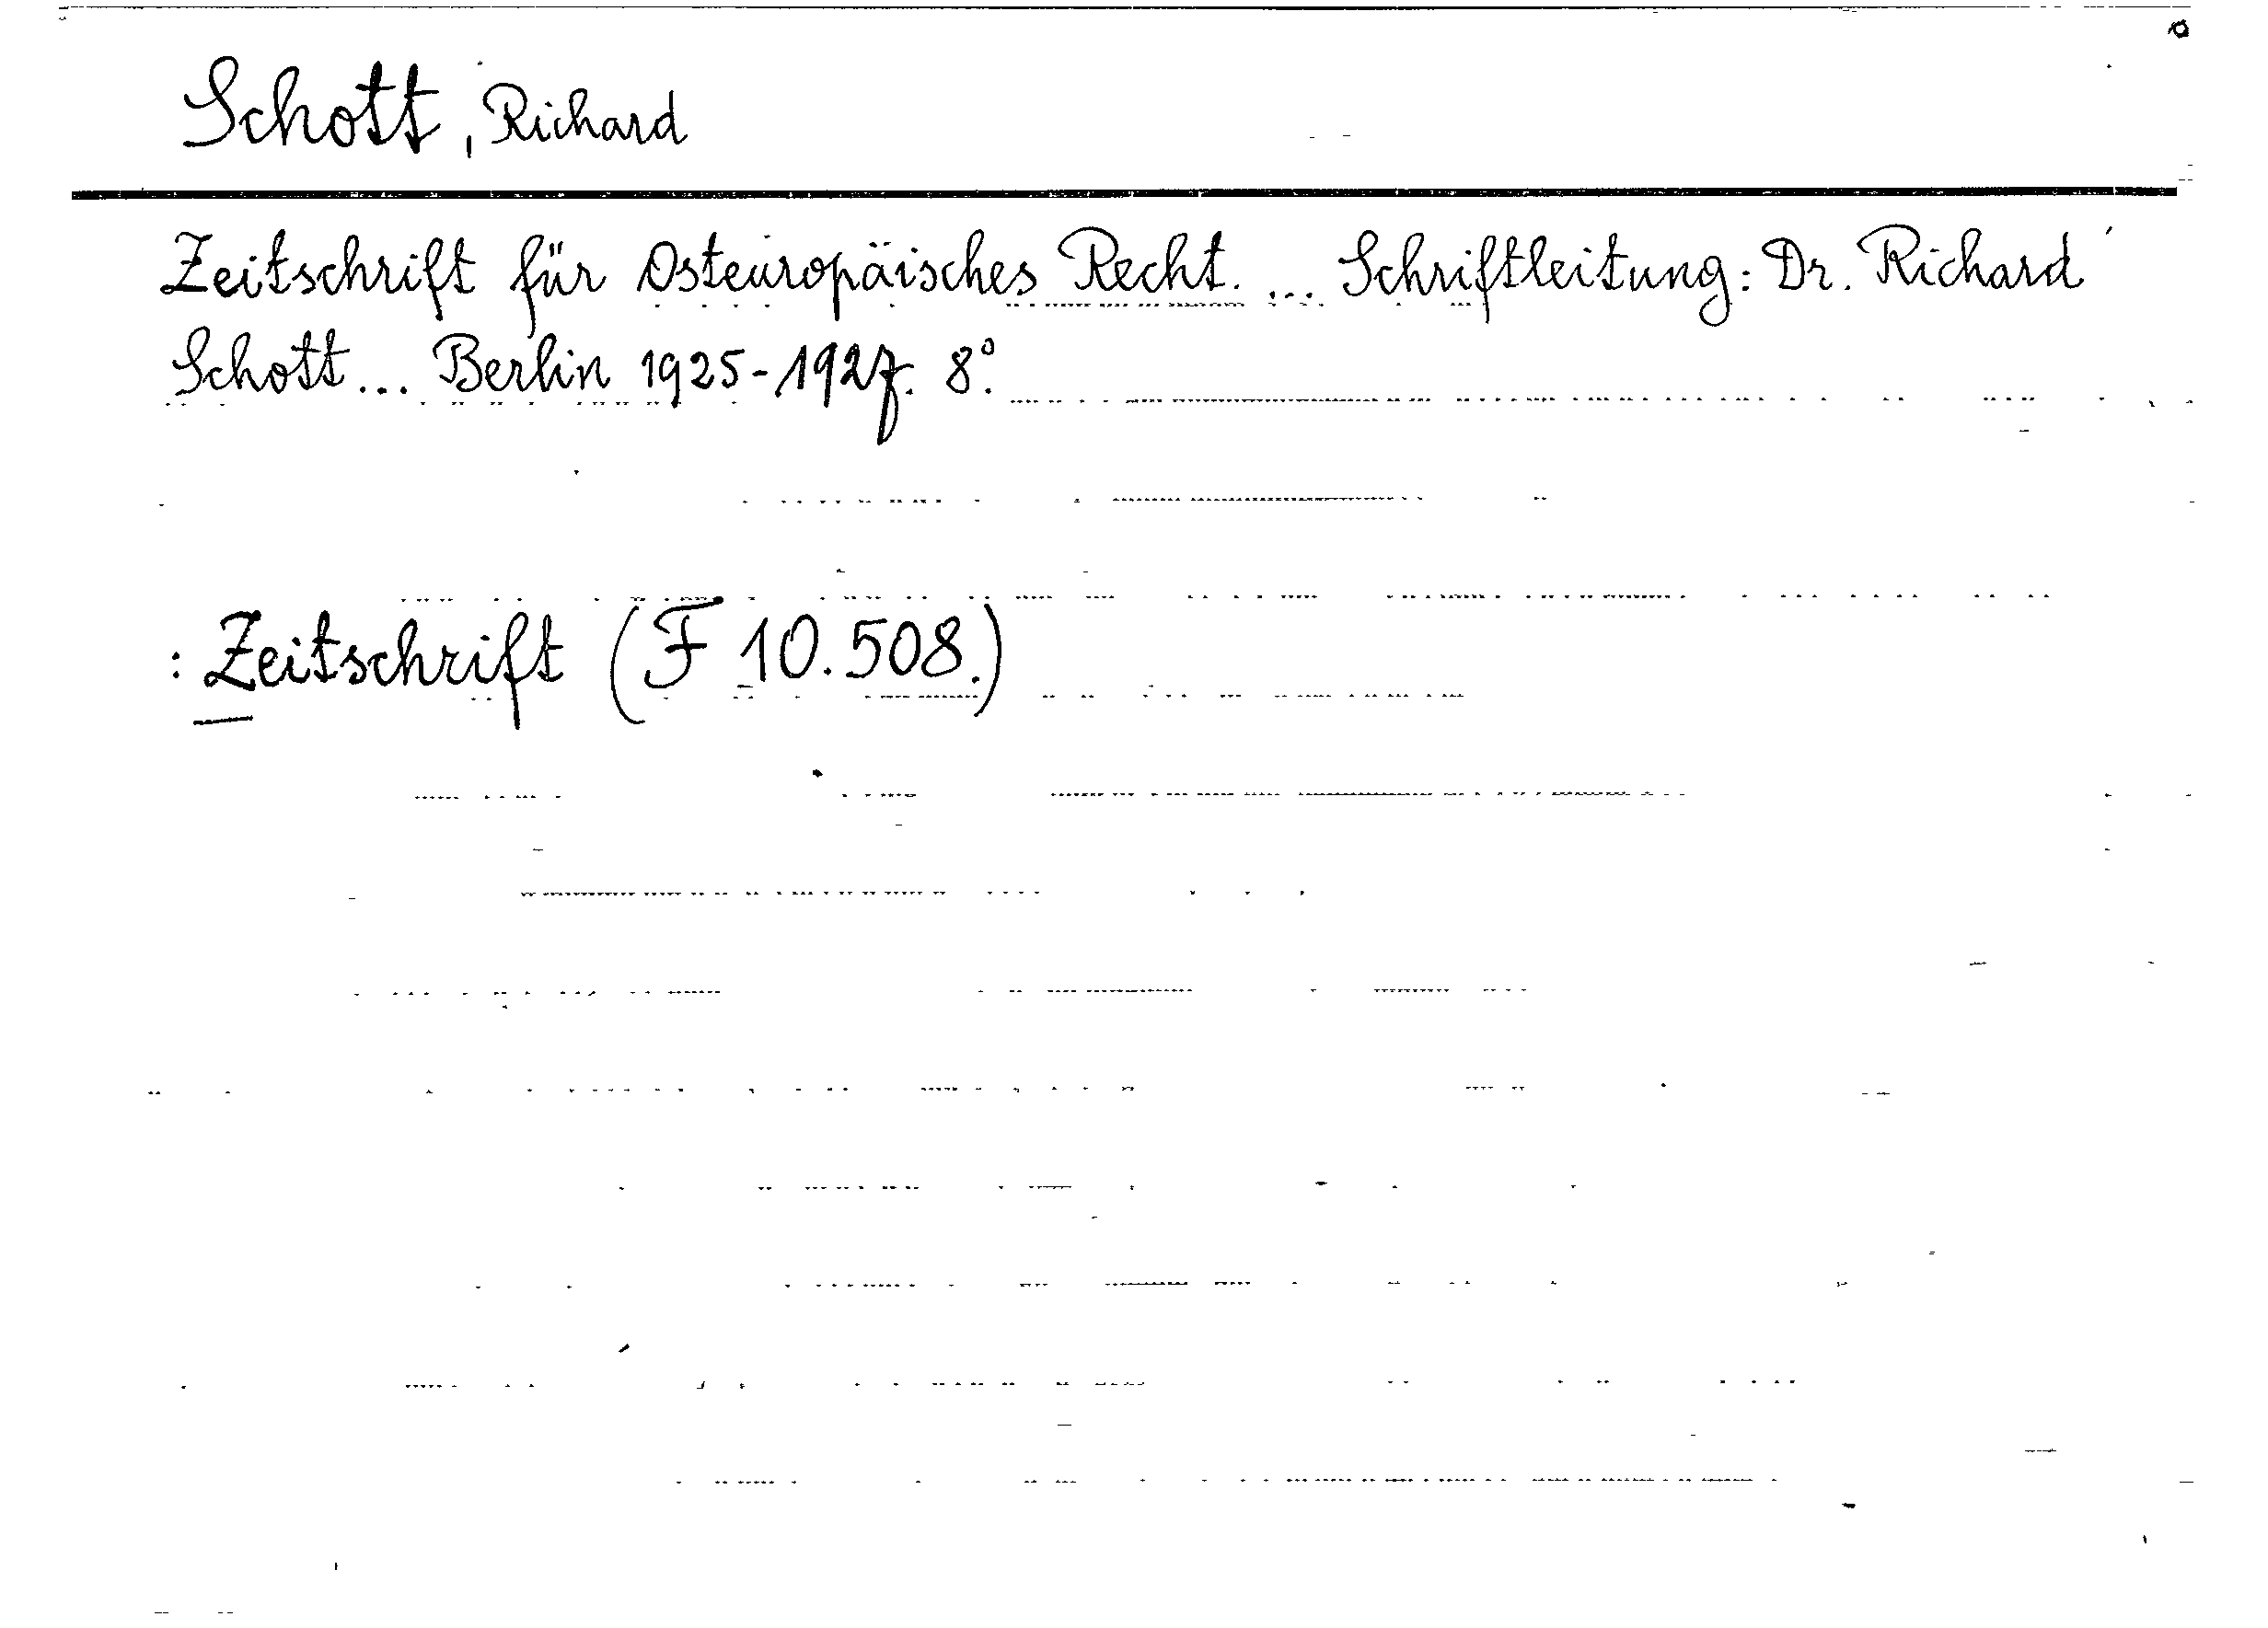 Schott, Richard
Zeitschrift für Osteuropäisches Recht. ... Schriftleitung: Dr. Richard
Schott... Berlin 1925-1927. 8°.
: Zeitschrift (F 10.508.)